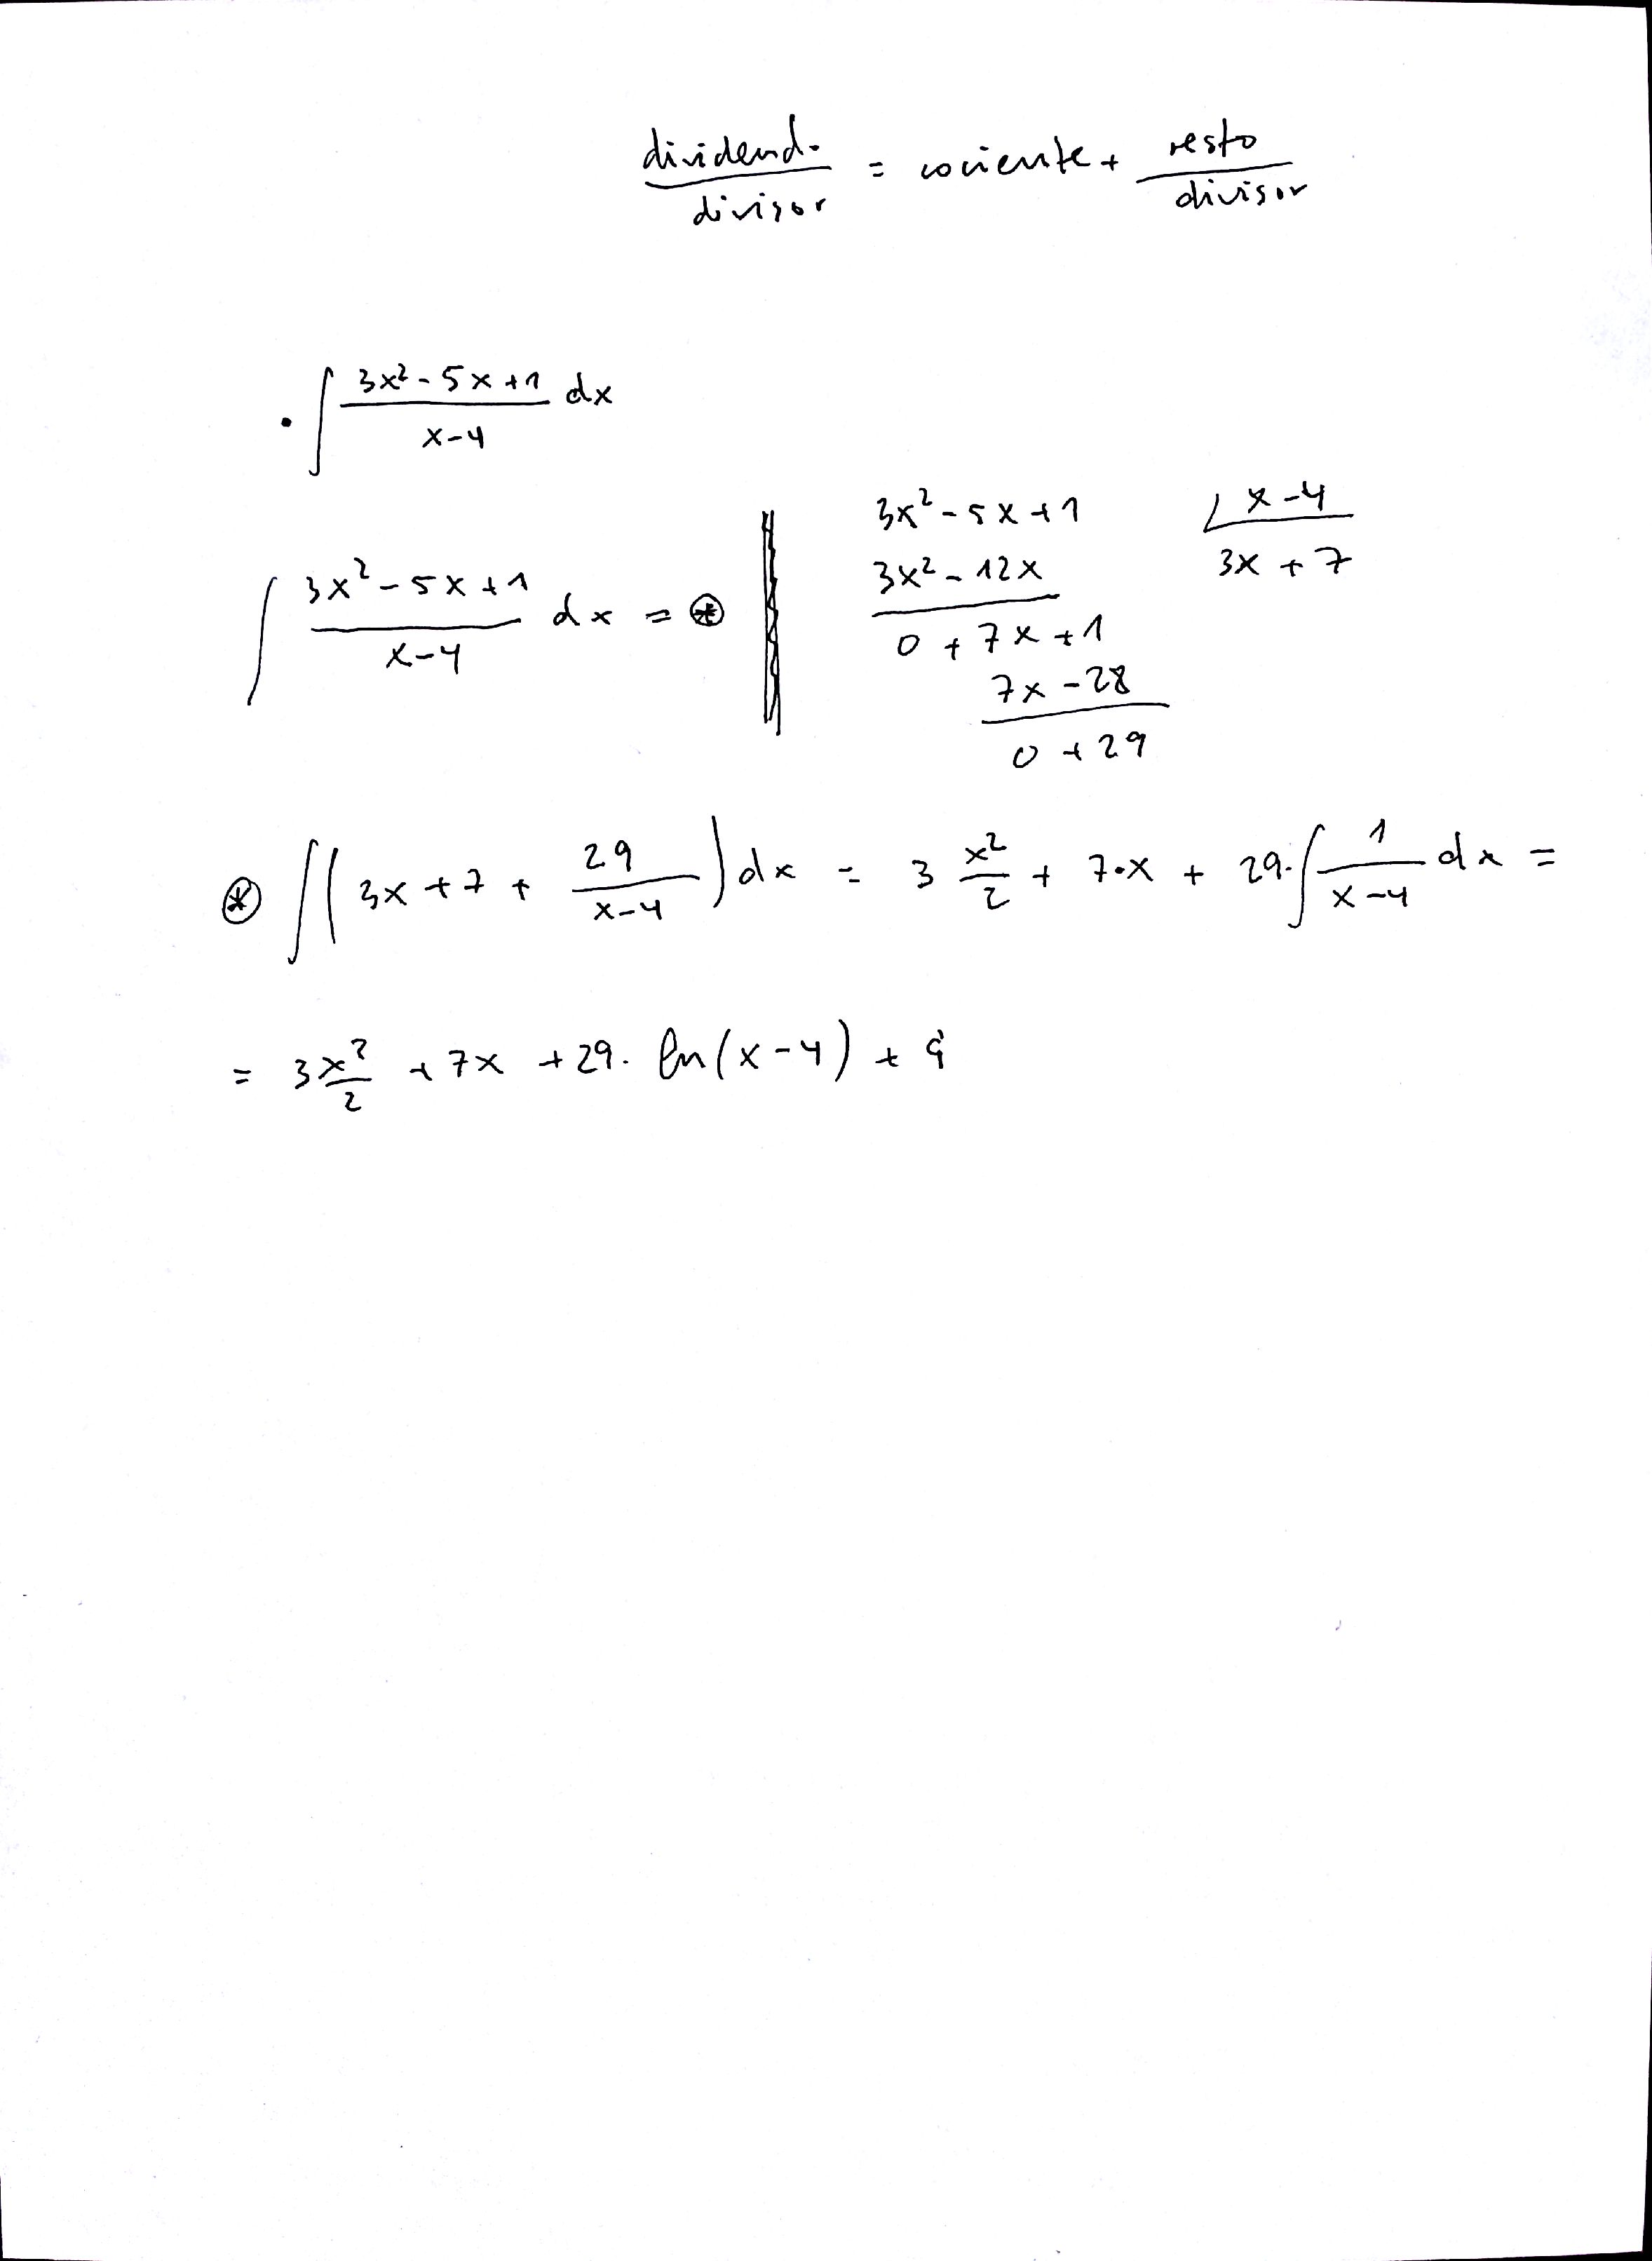 dividendo/divisor = cociente + resto/divisor
· ∫ (3x² - 5x + 1)/(x - 4) dx
∫ (3x² - 5x + 1)/(x - 4) dx = ⊛
3x² - 5x + 1 | x - 4
3x² - 12x 3x + 7
0 + 7x + 1
7x - 28
0 + 29
⊛ ∫ (3x + 7 + 29/(x - 4)) dx = 3 x²/2 + 7·x + 29·∫ 1/(x - 4) dx =
= 3x²/2 + 7x + 29· ln(x - 4) +